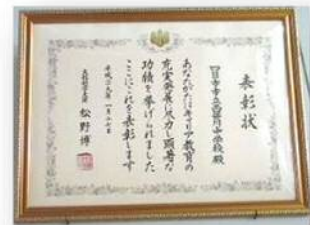 表彰状
四日市市立西笹川中学校殿
あなたがたはキャリア教育の
充実発展に尽力し顕著な
功績を挙げられました
ここにこれを表彰します
平成二十九年一月二十七日
文部科学大臣 松野博一